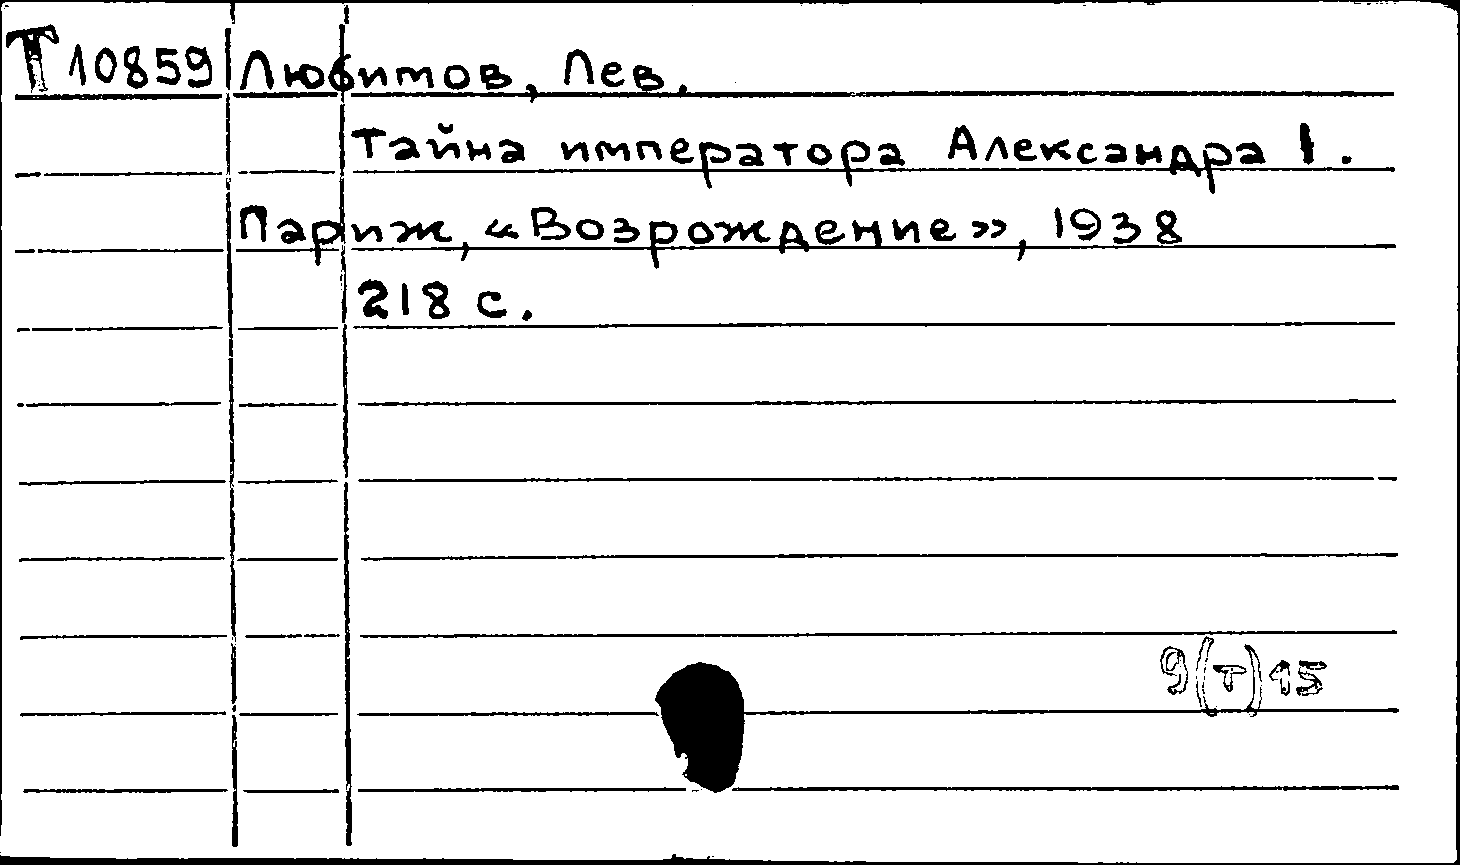 Т 10859 Любимов, Лев.
Тайна императора Александра I.
Париж, «Возрождение», 1938
218 с.
9(т)15